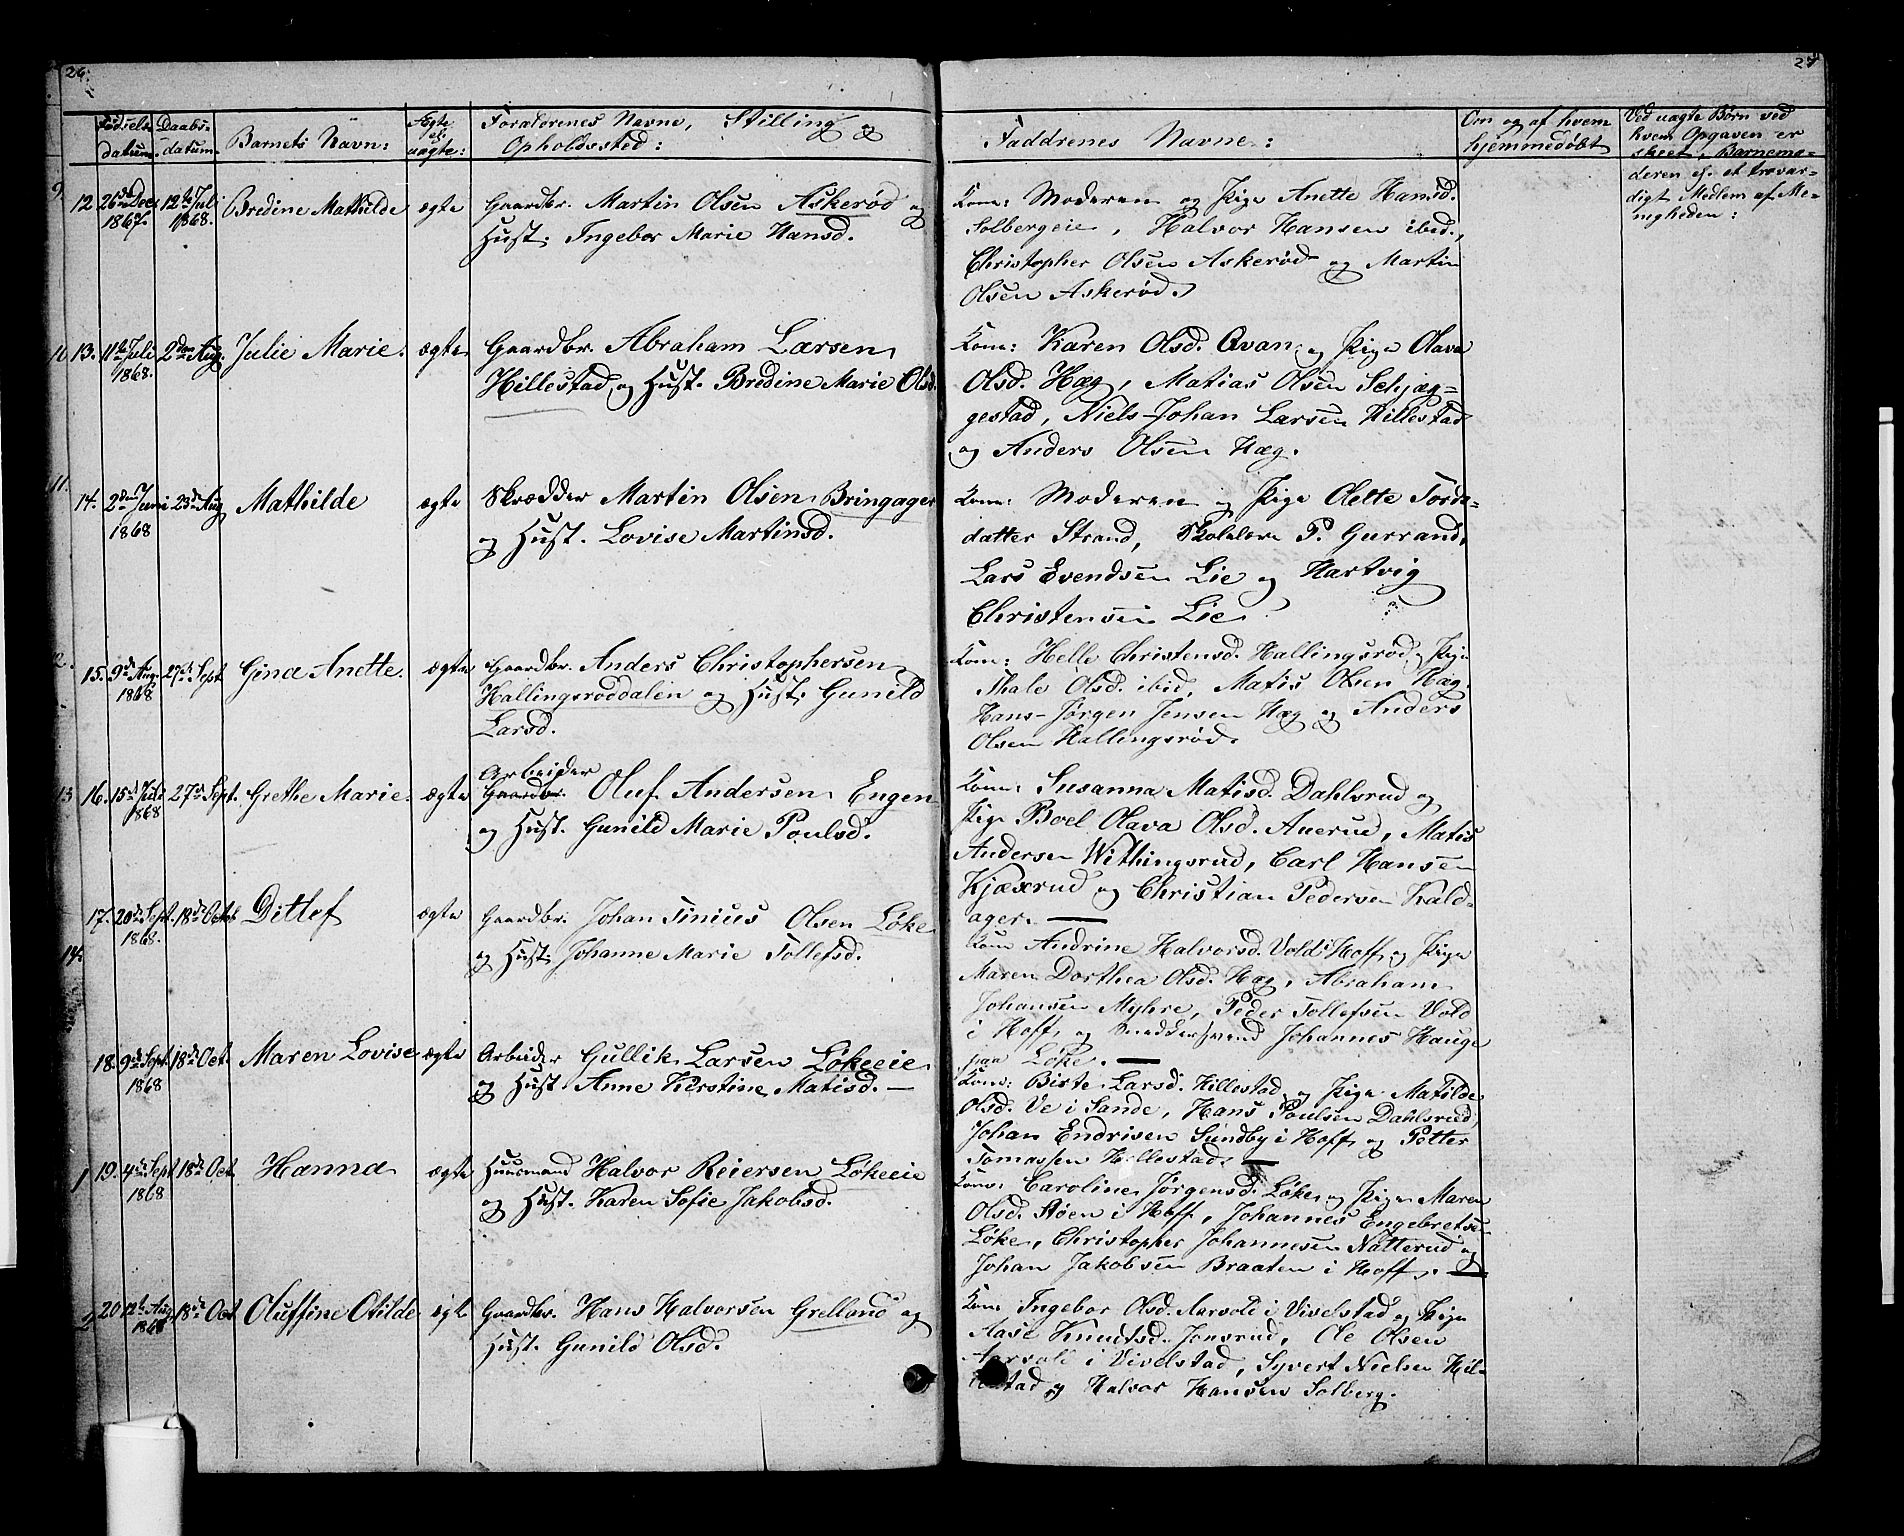 26.
27
Fødsels-
datum.
Daabs-
datum.
Barnets Navn:
Ægte
el.
uægte:
Forældrenes Navne, Stilling og
Opholdssted:
Faddrenes Navne:
Om og af hvem
hjemmedøbt
Ved uægte Børn ved
hvem Opgaven er
skeet, Barnemo-
deren el. et trovær-
digt Medlem af Me-
nigheden:
9.
12 26de Dec. 1867. 12te Juli 1868. Bredine Mathilde ægte
Gaardbr. Martin Olsen Askerød og
Hust. Ingebor Marie Hansd.
Kone: Moderen og Pige Anette Hansd.
Solbergeie, Halvor Hansen ibid.,
Christopher Olsen Askerød og Martin
Olsen Askerød.
10 13. 11te Juli 1868. 2den Aug. Julie Marie. ægte
Gaardbr. Abraham Larsen
Hillestad og Hust. Bredine Marie Olsd.
Kone: Karen Olsd. Qvan og Pige Olava
Olsd. Hæg, Matias Olsen Schjæg=
gestad, Niels-Johan Larsen Hillestad
og Anders Olsen Hæg.
11.
14. 2den Juni 1868 23de Aug Mathilde ægte
Skrædder Martin Olsen Bringager
og Hust. Lovise Martinsd.
Kone: Moderen og Pige Olette Tords-
datter Strand, Skolelærer P. Gurrand,
Lars Evendsen Lie og Hartvig
Christensen Lie
12.
15. 9de Aug. 1868 27de Sept Gina Anette. ægte
Gaardbr. Anders Christophersen
Hallingsrøddalen og Hust. Gunild
Larsd.
Kone: Helle Christensd. Hallingsrød, Pige
Thale Olsd. ibid, Matis Olsen Hæg,
Hans-Jørgen Jensen Hæg og Anders
Olsen Hallingsrød.
13 16. 15de Juli 1868 27de Sept. Grethe Marie. ægte
Arbeider
Gaardbr. Oluf Andersen Engen
og Hust. Gunild Marie Poulsd.
Kone: Susanna Matisd. Dahlsrud og
Pige Boel Olava Olsd. Auerud, Matis
Andersen Withingsrud, Carl Hansen
Kjæxrud og Christian Pedersen Kald-
ager.
17. 20de Sept. 1868. 18de Octob Ditlef ægte
14.
Gaardbr. Johan Sinius Olsen Løke
og Hust. Johanne Marie Tollefsd.
Kone Andrine Halvorsd. Vold i Hoff og Pige
Maren Dorthea Olsd. Hæg, Abraham
Johansen Myhre, Peder Tollefsen Vold
i Hoff og Snedkersvend Johannes Hauge
paa Løke.
18. 9de Sept. 1868 18de Oct. Maren Lovise ægte
Arbeider Gullik Larsen Løkeeie
og Hust. Anne Kirstine Matisd.
Kone: Birte Larsd. Hillestad og Pige Matilde
Olsd. Ve i Sande, Hans Poulsen Dahlsrud,
Johan Endrisen Sundby i Hoff og Petter
Tomassen Hillestad.
1 19. 4de Sept. 1868 18de Oct. Hanna ægte
Huusmand Halvor Reiersen Løkeeie
og Hust. Karen Sofie Jakobsd.
Kone: Caroline Jørgensd. Løke og Pige Maren
Olsd. Støen i Hoff, Johannes Engebretsen
Løke, Christopher Johannesen Natterud og
Johan Jakobsen Braaten i Hoff.
2 20 12te Aug. 1868 18de Oct Oluffine Otilde ægte
Gaardbr. Hans Halvorsen Grelland og
Hust. Gunild Olsd.
Kone Ingebor Olsd. Aarvold i Vivelstad og Pige
Aase Knudtsd. Jonsrud, Ole Olsen
Aarvold i Vivelstad, Syvert Nielsen Hil-
lestad og Halvor Hansen Solberg.